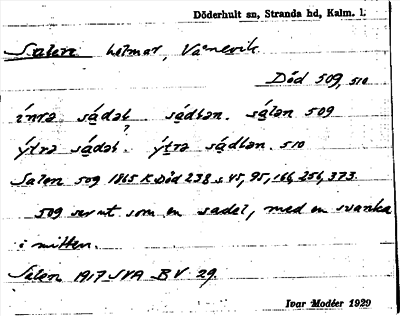 Döderhult sn, Stranda hd, Kalm. l.
Salen holmar, Vånevik.
Död 509, 510
ínrə sádəl sádlən. sálən 509
?
ýtrə sádəl. ýtrə sádlən. 510
Salen 509 1865 K Död 238 s 45, 95, 166, 256, 373.
509 ser ut som en sadel, med en svanka
i mitten.
Salen 1917 SNA B V 29.
Ivar Modéer 1929